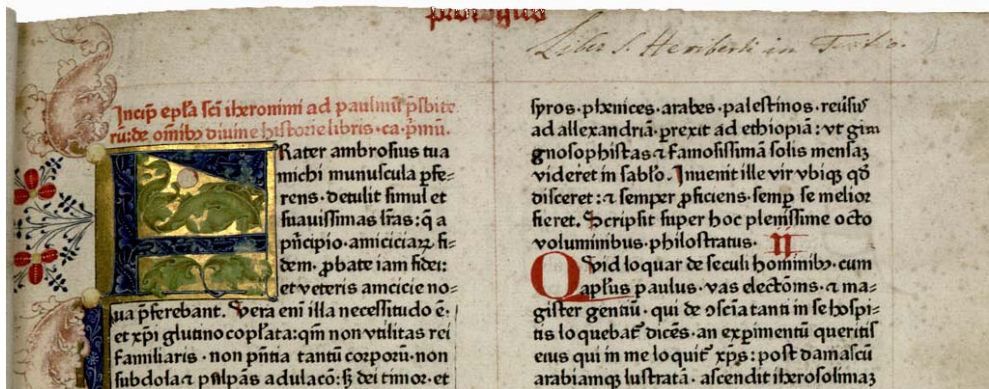 prologus
Liber S. Heriberti in Tuitio.
Incip̄ ep̄la sc̄i iheronimi ad paulinū p̄sbite
rū: de om̄ibꝰ diuine historie libris · ca · p̄mū.
Rater ambrosius tua
michi munuscula ꝑfe-
rens · detulit simul et
suauissimas lr̄as: q̄ a
pn̄cipio · amiciciaꝝ fi-
dem · ꝓbate iam fidei:
et veteris amicicie no-
ua p̄ferebant. Vera eni illa necessitudo ē ·
et xp̄i glutino copl̄ata: qm̄ non vtilitas rei
familiaris · non pn̄tia tantū corporū · non
subdola ⁊ palpās adulacō: sꝫ dei timor · et
syros · phenices · arabes · palestinos · reūsus
ad allexandriā · perexit ad ethiopiā: vt gim
gnosophistas ⁊ famosissimā solis mensaꝫ
videret in sabl̄o. Inuenit ille vir vbiqꝫ qd̄
disceret: ⁊ semper ꝓficiens · semp̄ se melior
fieret. Scripsit super hoc plenissime octo
voluminibus · philostratus. II
Quid loquar de seculi hominibꝰ · cum
apl̄us paulus · vas electōnis · ⁊ ma-
gister gentiū · qui de ↄscīa tanti in se hospi-
tis loquebat̄ dicēs · an exꝑimentū queritis
eius qui in me loquit̄ xp̄s: post damascū
arabiamqꝫ lustratā · ascendit iherosolimaꝫ